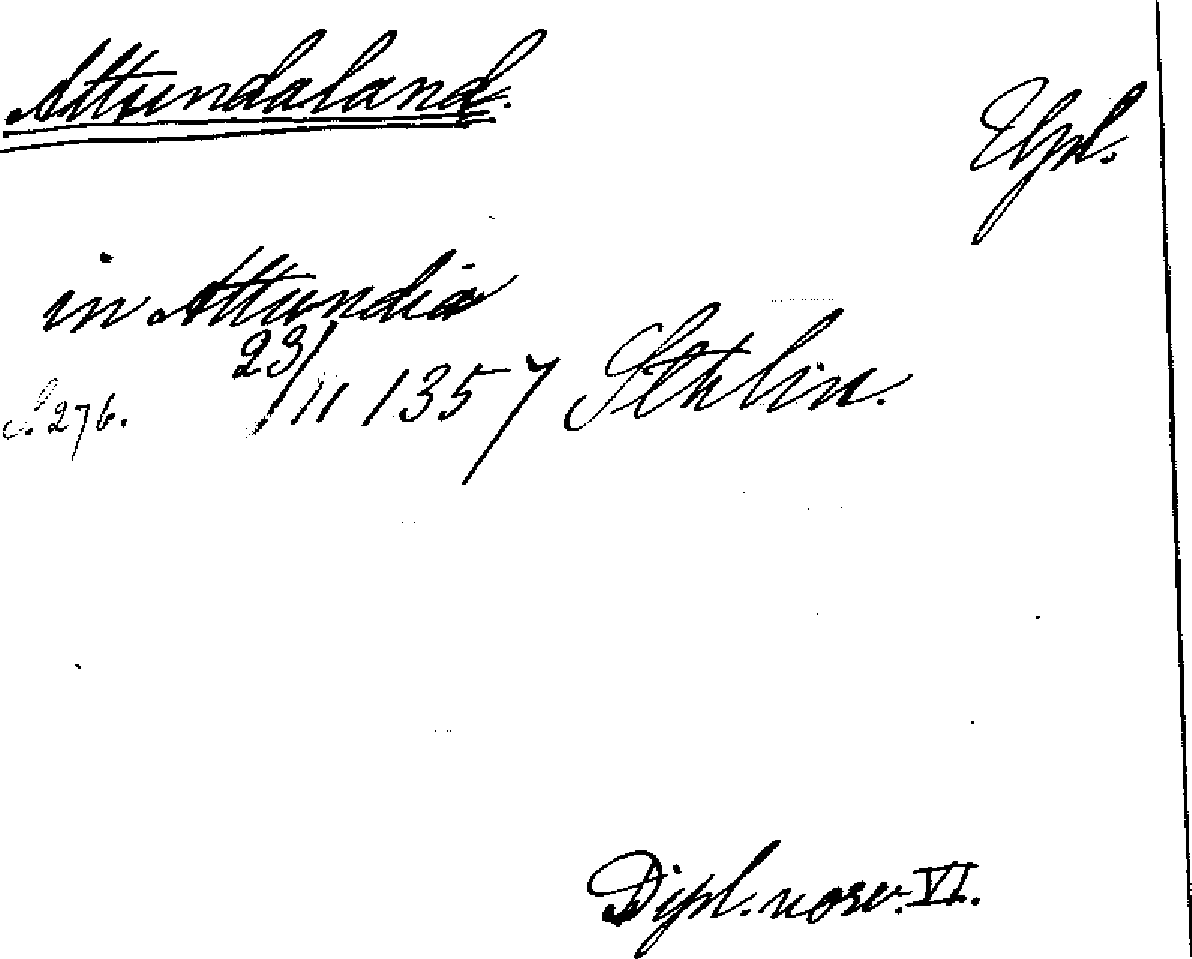 Attundaland.
Upl.
in Attundia
S. 276. 23/11 1357 Sthlm.
Dipl. norv. VI.